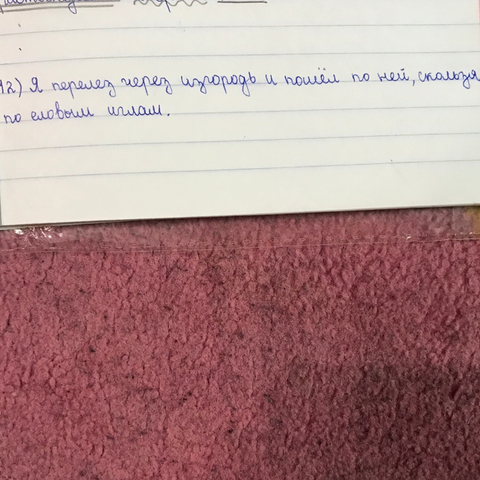 12) Я перелез через изгородь и пошёл по ней, скользя
по еловым иглам.